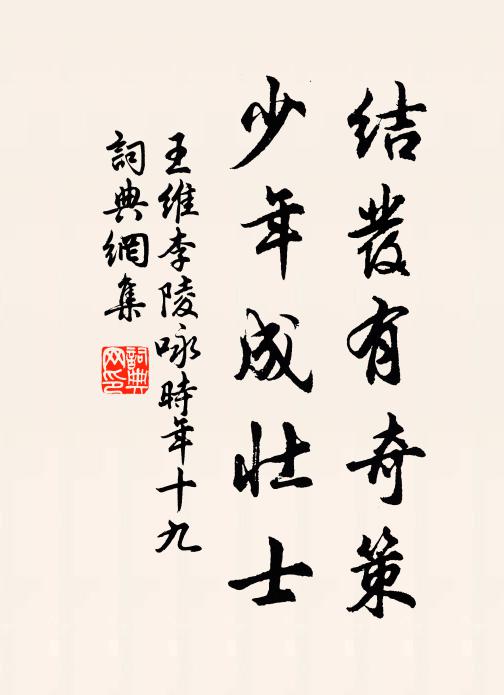 结發有奇策
少年成壮士
王维李陵咏時年十九
詞典網集
詞典网印